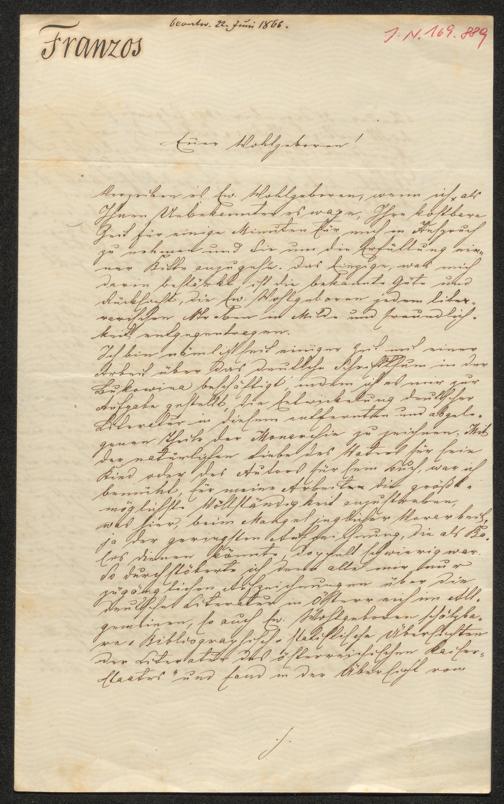 beantw. 22. Juni 1866.
Franzos
J. N. 169.889
Euer Wohlgeboren!
Verzeihen es Ew. Wohlgeboren, wenn ich, als
Ihnen Unbekannter es wage, Ihre kostbare
Zeit für einige Minuten für mich in Anspruch
zu nehmen und Sie um die Erfüllung ei-
ner Bitte anzugehn. Das Einzige, was mich
darin bestärkt ist die bekannte Güte und
Rücksicht, die Ew. Wohlgeboren jedem liter-
rarischen Streben in Milde und Freundlich-
keit entgegentragen.
Ich bin nämlich seit einiger Zeit mit einer
Arbeit über das deutsche Schriftthum in der
Bukowina beschäftigt indem ich es mir zur
Aufgabe gestellt, die Entwickelung deutscher
Literatur in diesem entfernten und abgele-
genen Theile der Monarchie zu zeichnen. Mit
der natürlichen Liebe des Vaters für sein
Kind oder des Autors für sein Buch, war ich
bemüht, für meine Arbeiten die größt-
möglichste Vollständigkeit anzustreben,
was hier, beim Mangel jeglicher Vorarbeit,
ja der geringsten Aufzeichnung, die als Ba-
sis dienen könnte, doppelt schwierig war.
So durchstöberte ich denn alle mir nur
zugänglichen Aufzeichnungen über die
deutsche Literatur in Österreich im All-
gemeinen, so auch Ew. Wohlgeboren schätzba-
re „Bibliographisch-statistische Übersichten
der Literatur des österreichischen Kaiser-
staates" und fand in der Überzahl von
./.